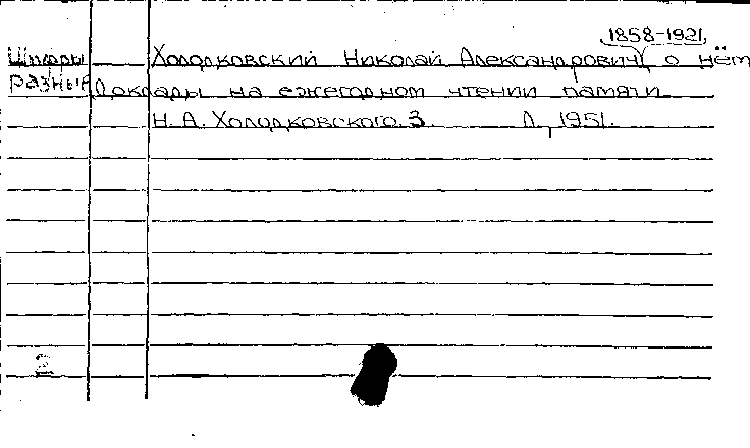 1858-1921
Шифры Холодковский Николай Александрович, о нём
разные Доклады на ежегодном чтении памяти
Н. А. Холодковского. 3. Л, 1951.
2